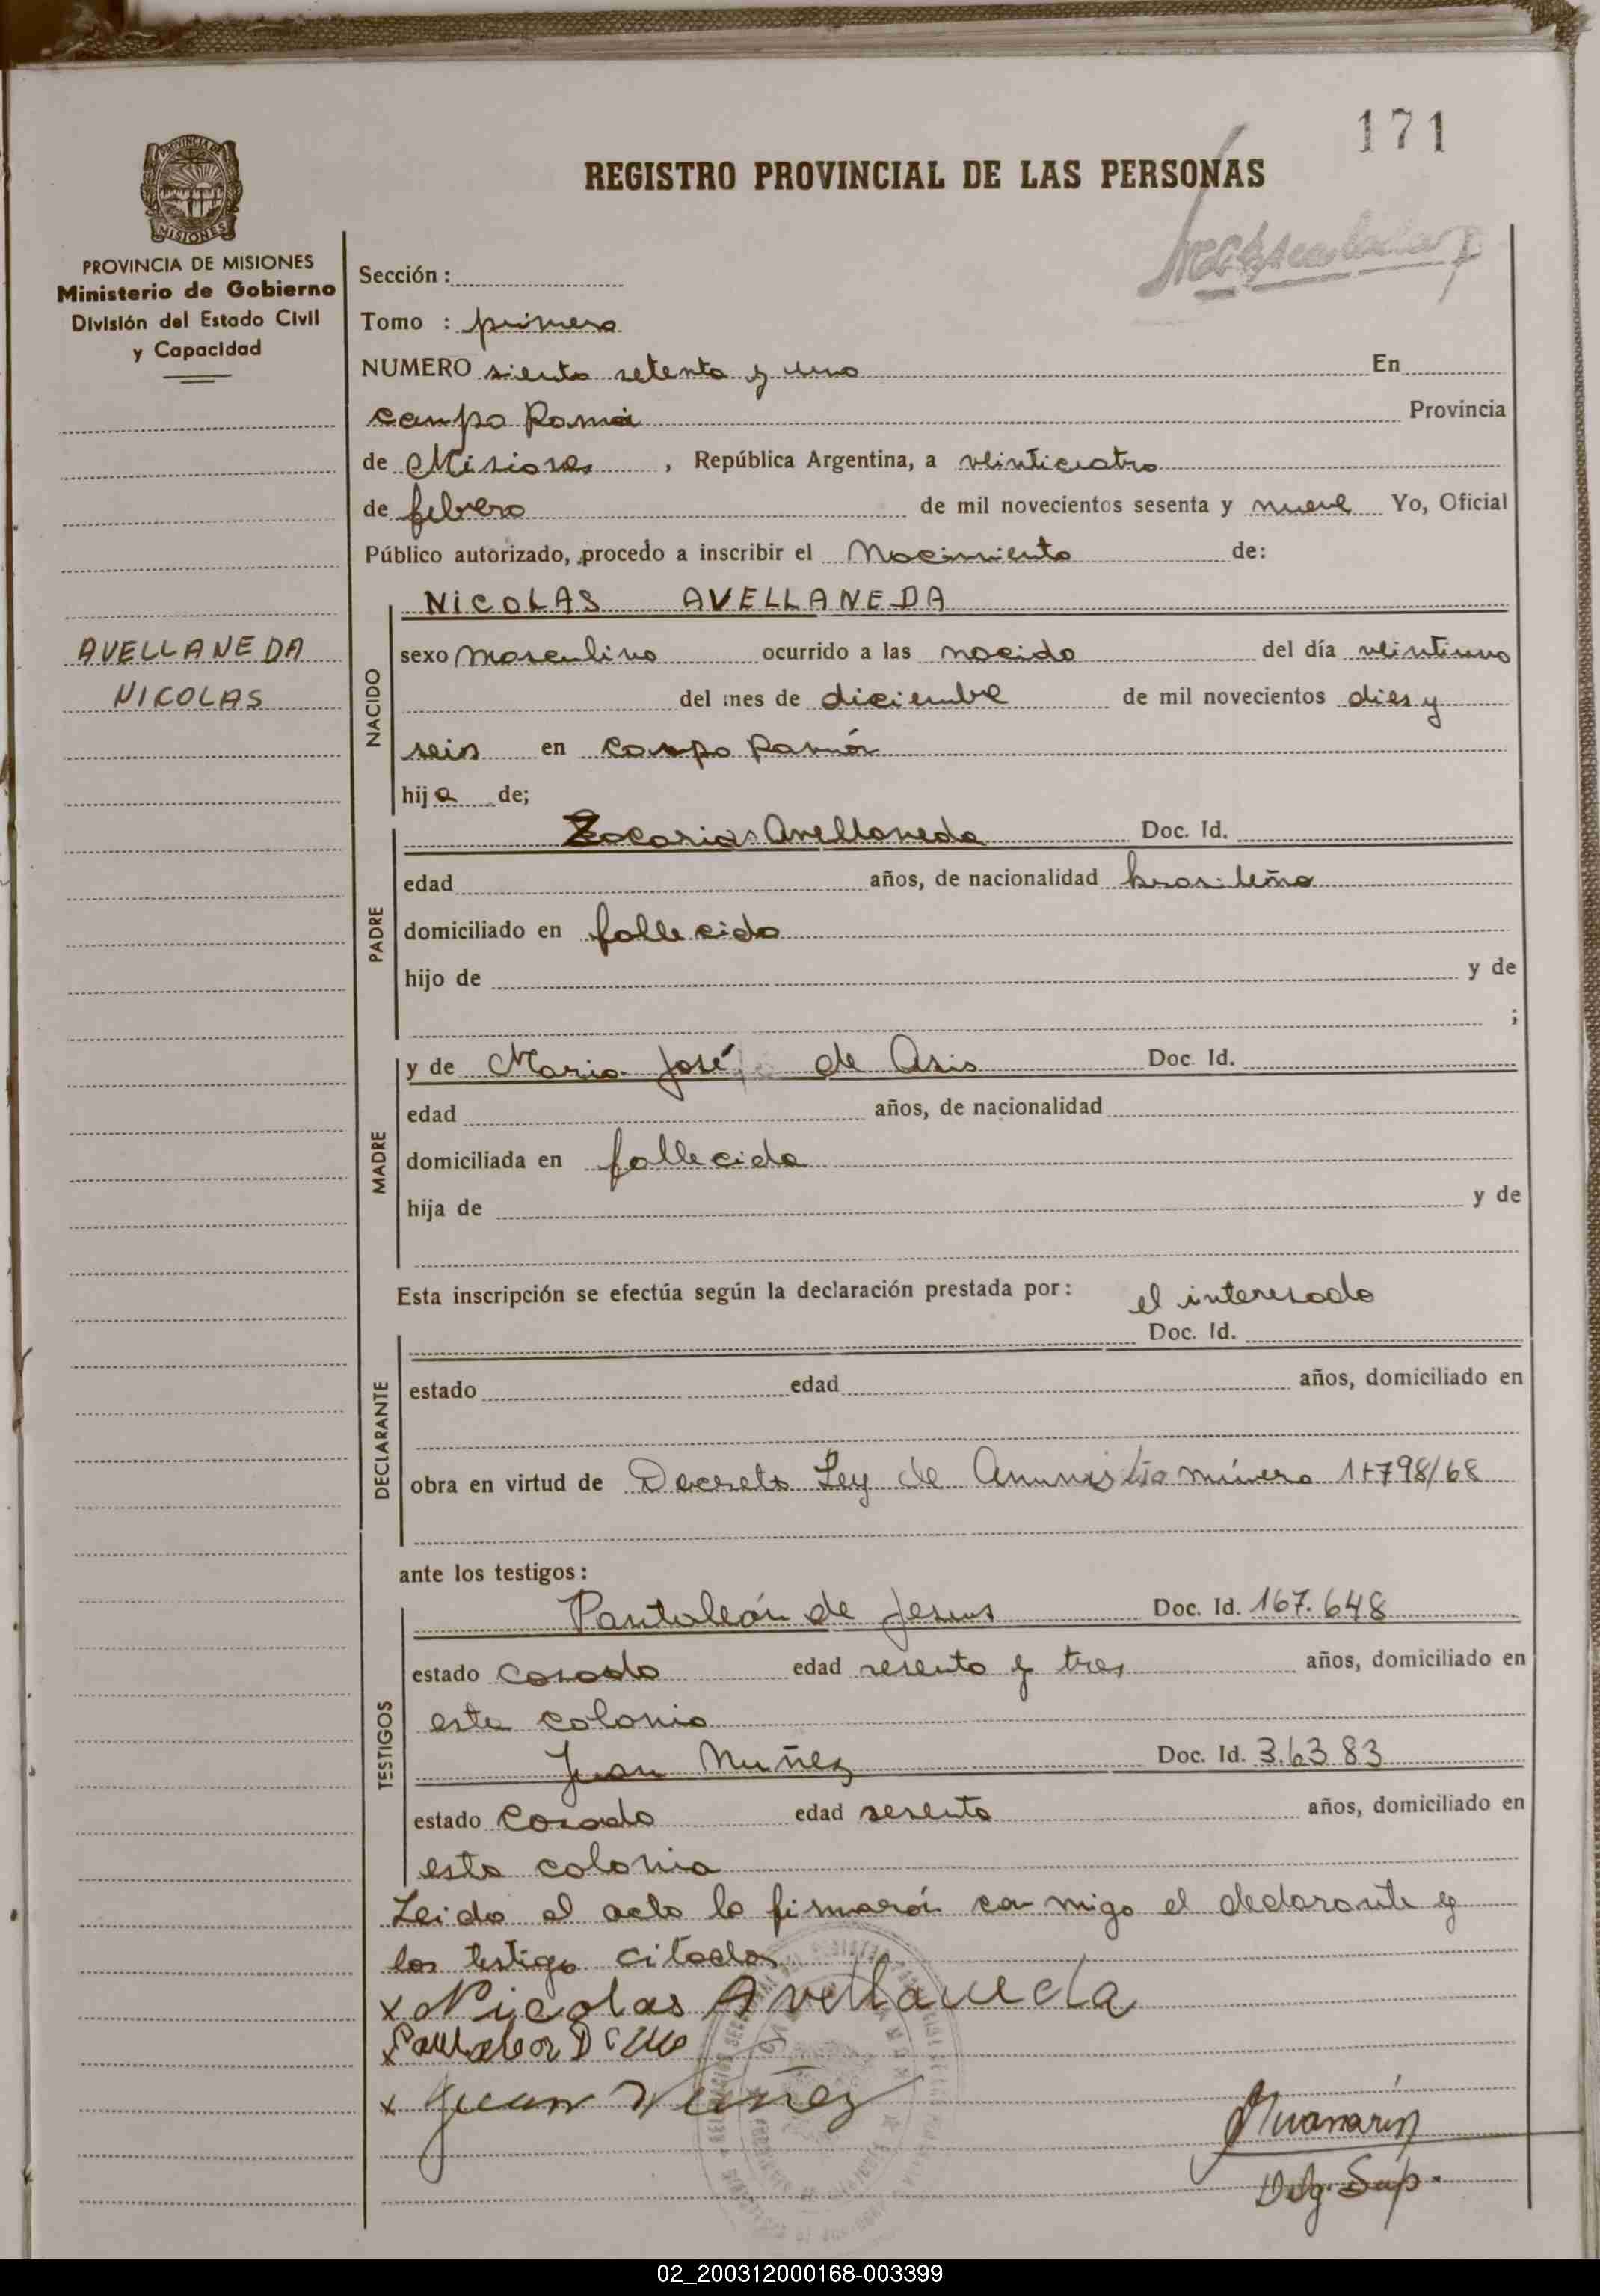 171
REGISTRO PROVINCIAL DE LAS PERSONAS
PROVINCIA DE MISIONES
MISIONES
PROVINCIA DE MISIONES
Ministerio de Gobierno
División del Estado Civil
y Capacidad
Sección :
Tomo : primero
NUMERO siento setenta y uno En
campo Ramón Provincia
de Misiones , República Argentina, a veinticuatro
de febrero de mil novecientos sesenta y nueve Yo, Oficial
Público autorizado, procedo a inscribir el Nacimiento de:
NICOLAS AVELLANEDA
AVELLANEDA
NICOLAS
NACIDO
sexo masculino ocurrido a las nacido del día veintiuno
del mes de diciembre de mil novecientos dies y
seis en campo Ramón
hija de;
PADRE
Zacarias Avellaneda Doc. Id.
edad años, de nacionalidad brasileño
domiciliado en fallecido
hijo de y de
;
MADRE
y de Maria José de Asis Doc. Id.
edad años, de nacionalidad
domiciliada en fallecida
hija de y de
Esta inscripción se efectúa según la declaración prestada por: el interesado
DECLARANTE
Doc. Id.
estado edad años, domiciliado en
obra en virtud de Decreto Ley de Amnistia número 17798/68
ante los testigos:
TESTIGOS
Pantaleón de Jesus Doc. Id. 167.648
estado casado edad sesenta y tres años, domiciliado en
esta colonia
Juan Nuñez Doc. Id. 3.63 83
estado casado edad sesenta años, domiciliado en
esta colonia
Leido el acta la firmarán con migo el declarante y
los testigo citados
x Nicolas Avellaneda
x
x Juan Nuñez
Dlg. Sup.
02_200312000168-003399